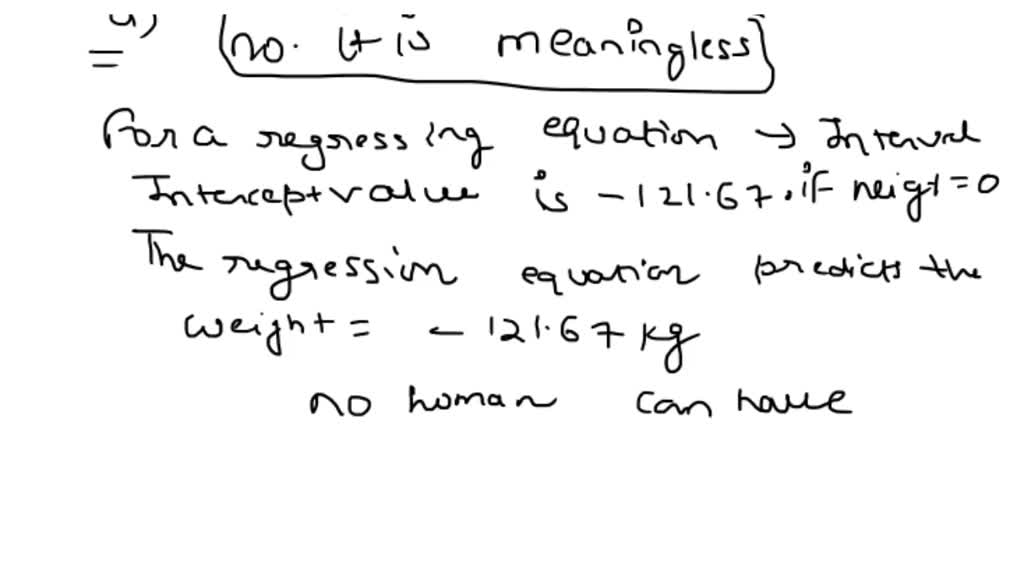 = (no. It is meaningless]
For a regressing equation → Interval
Intercept value is -121.67. if heigt = 0
The regression equation predicts the
weight = - 121.67 kg
no human can have